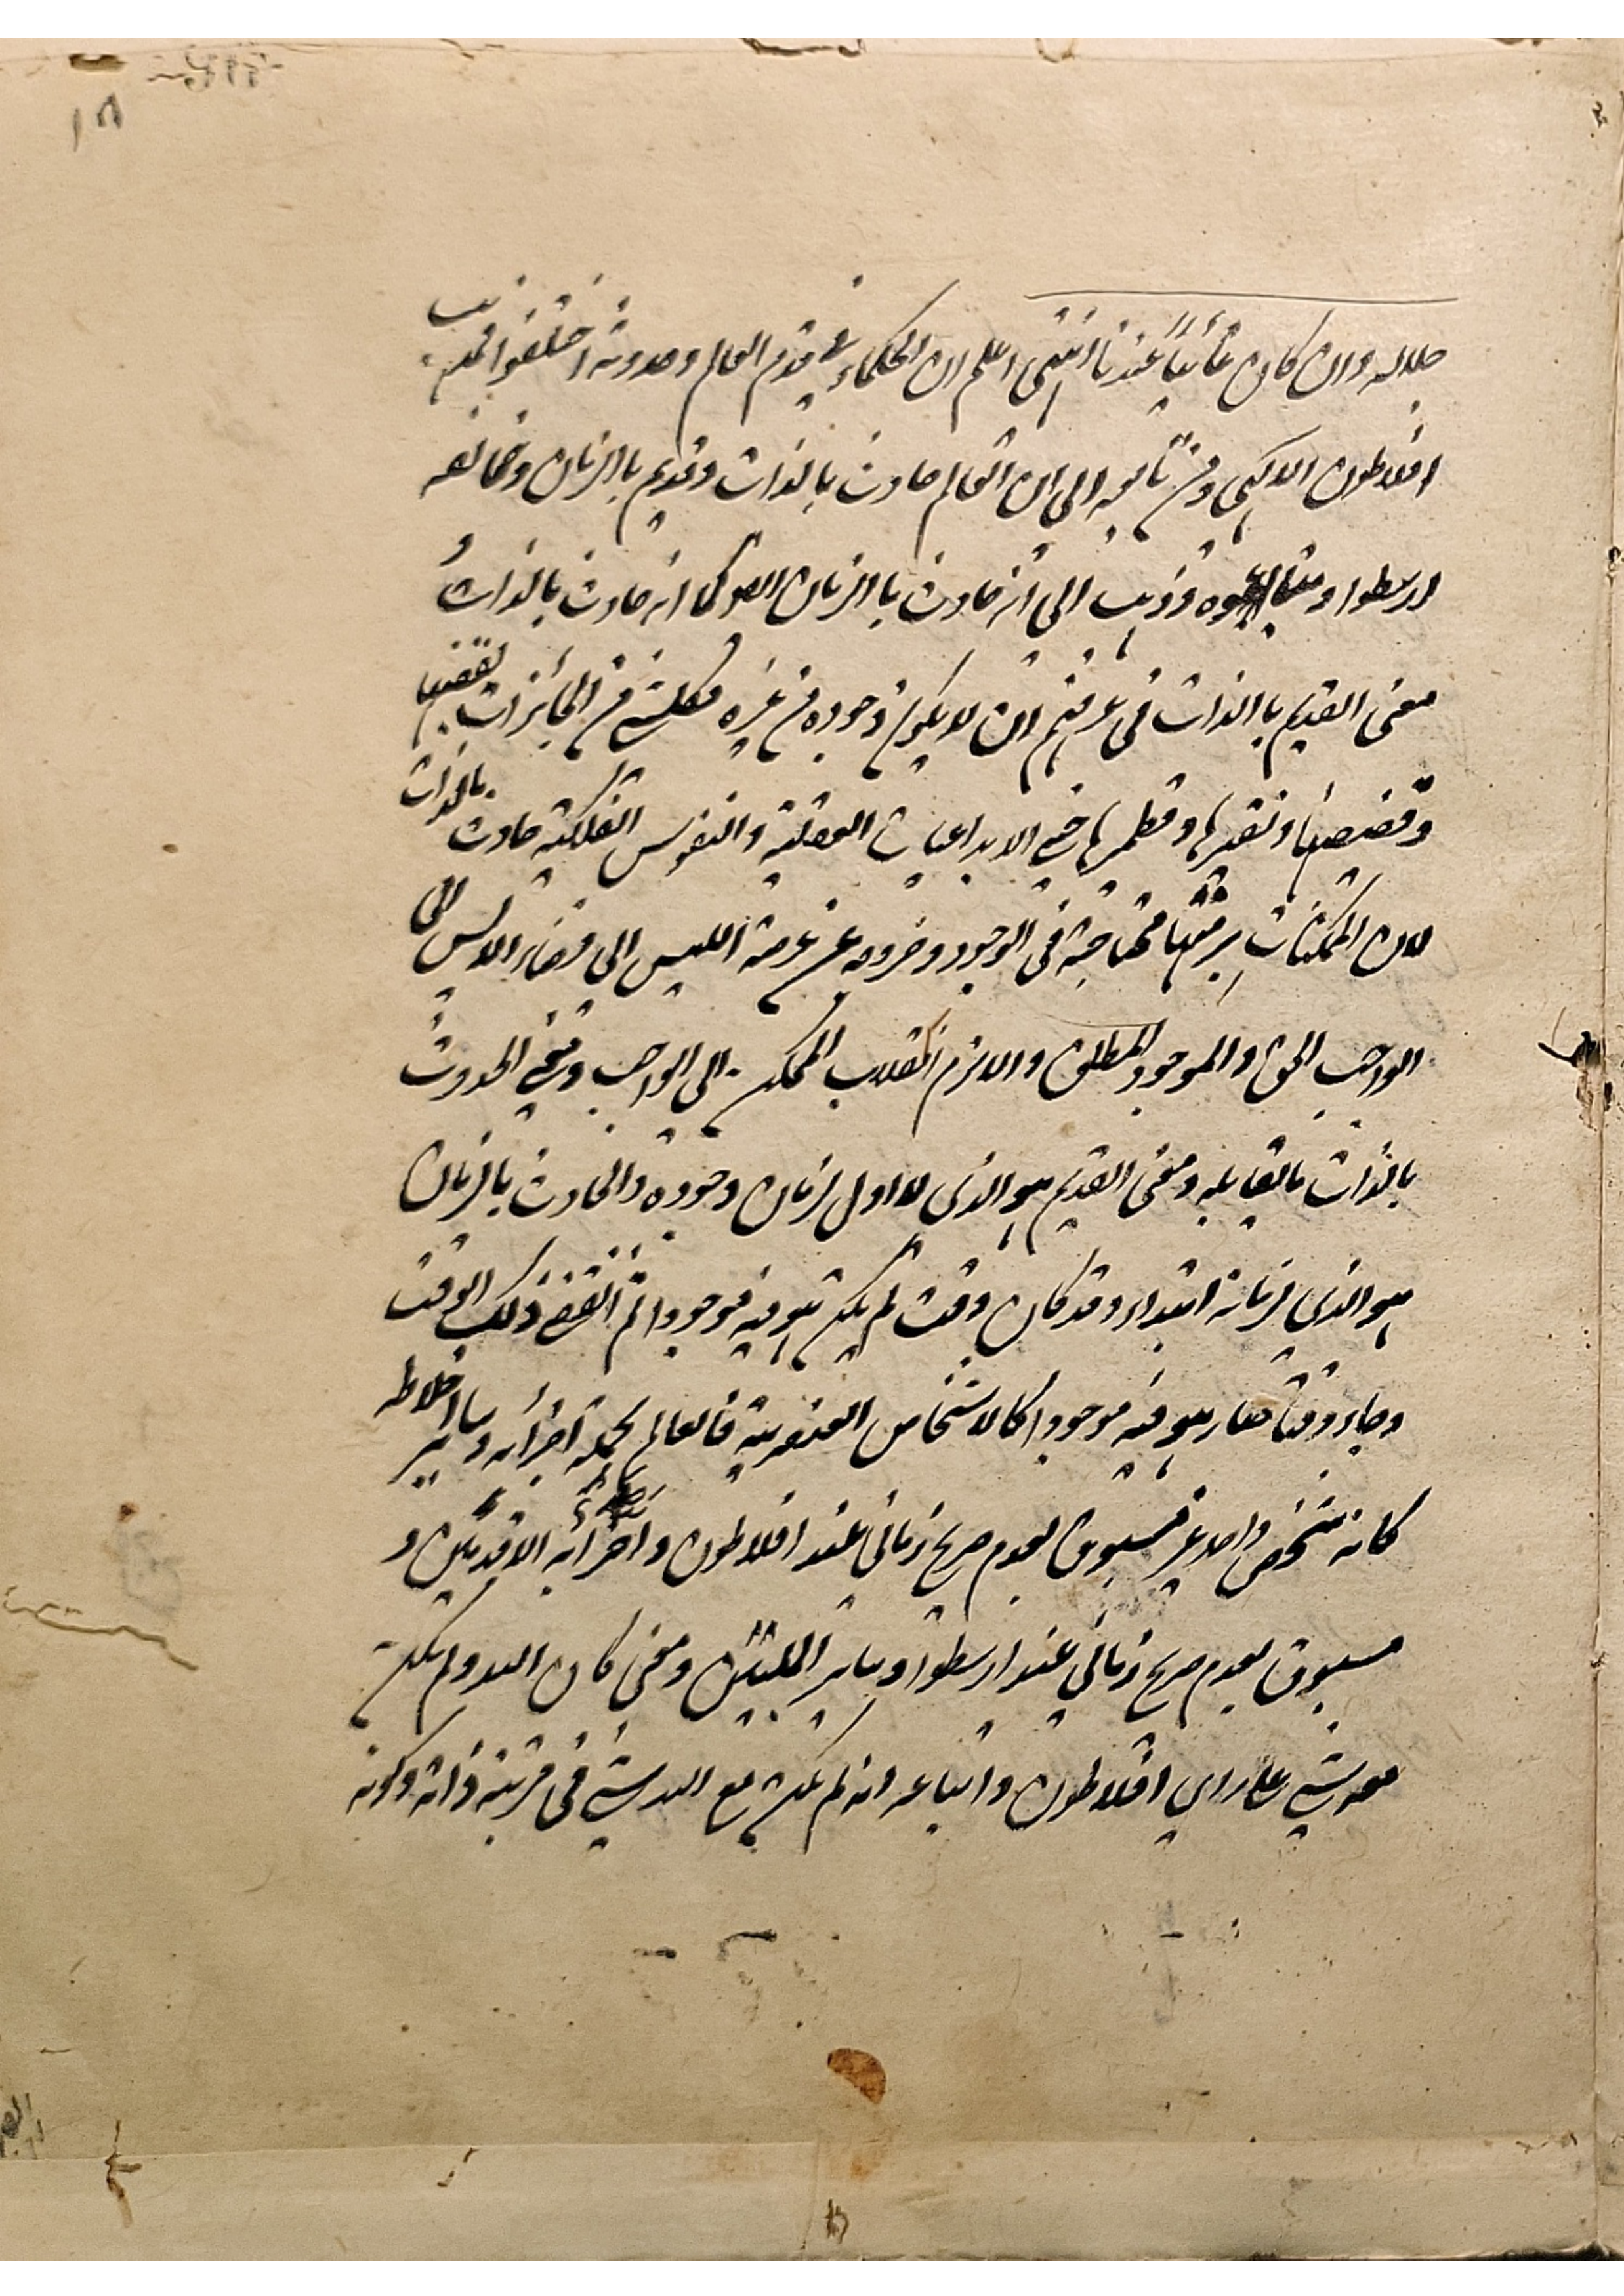 ١٥
جلاله وان كان غائبا عندنا انتهى اعلم ان الحكماء في قدم العالم وحدوثه اختلفوا فذهب
افلاطون الالهي ومن تابعه الى ان العالم حادث بالذات وقديم باالزمان وخالفه
ارسطوا ومتابعوه وذهب الى انه حادث باالزمان ايضا كما انه حادث بالذات و
معنى القديم باالذات في عرفهم ان لا يكون وجوده من غيره فكل شئ من الجائزات بقضها
وقضيضها ونقيرها وقطميرها حتى الابداعيات العقلية والنفوس الفلكية حادث بالذات
لان الممكنات برمتها محتاجة في الوجود وخروجه عن عرصة الليس الى فضاء الايس الى
الواجب الحق والموجود المطلق والا لزم انقلاب الممكن الى الواجب ومعنى الحدوث
بالذات ما يقابله ومعنى القديم هو الذي لا اول لزمان وجوده والحادث بالزمان
هو الذي لزمانه ابتداء وقد كان وقت لم يكن هو فيه موجودا ثم انقضى ذلك الوقت
وجاء وقتا فصار هو فيه موجودا كالاشخاص العنصرية فالعالم بجملة اجزائه وساير اخلاطه
كانه شخص واحد غير مسبوق بعدم صريح زماني عند افلاطون واضرابه الاقدمين و
مسبوق بعدم صريح زماني عند ارسطوا وساير المليين ومعنى كان الله ولم يكن
معه شئ على راي افلاطون واتباعه انه لم يكن مع الله شئ في مرتبة ذاته وكونه